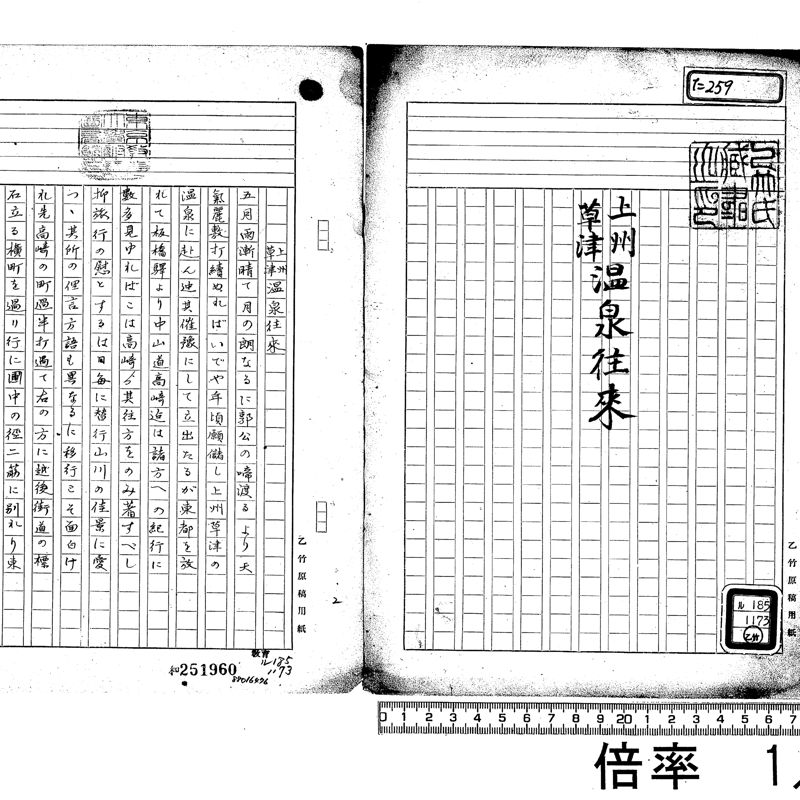 た259
乙竹氏蔵書之印
上州草津温泉往來
乙竹原稿用紙
ル185
1173
乙竹
上州草津温泉往來
五月雨漸晴て月の朗なるに郭公の啼渡るより天
氣麗敷打續ぬればいでや年頃願儲し上州草津の
温泉に赴ん迚其催積にして立出たるが東都を放
れて板橋驛より中山道高崎迄は諸方への紀行に
數多見ゆればこは高崎ゟ其往方をのみ著すべし
抑旅行の慰とするは日毎に替行山川の佳景に愛
つゝ其所の俚言方語も異なるに移行こそ面白け
れ先高崎の町過半打過て右の方に越後街道の標
石立る横町を過り行に圃中の徑二筋に別れり東
乙竹原稿用紙
2
教育
ル185
1173
和251960
88016476
0 1 2 3 4 5 6 7 8 9 20 1 2 3 4 5 6 7
倍率 1